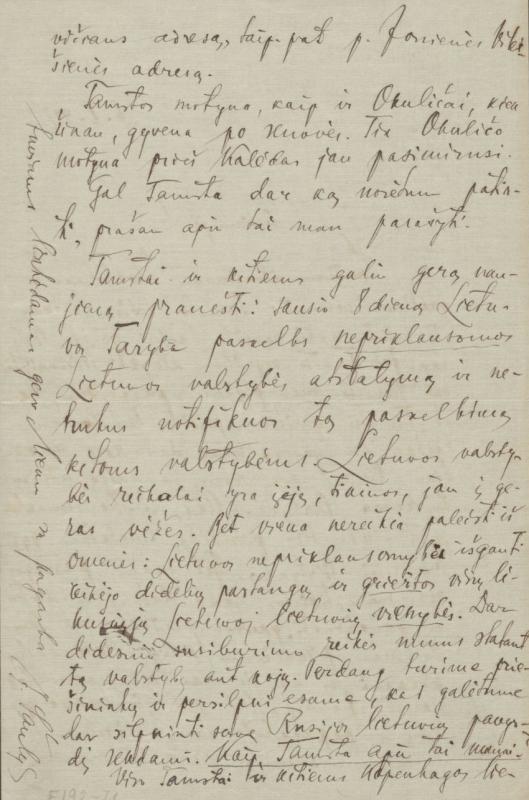 adresą, taip-pat p.
šienės adresą.
Tamstos motyna, kaip ir Okuličai, kiek
žinau, gyvena po senovės. Tik Okuličo
motyna prieš Kalėdas jau pasimirusi.
Gal Tamsta dar ką norėtum patir-
ti, prašau apie tai man parašyti.
Tamstai ir kitiems galiu gerą nau-
jieną pranešti: sausio 8 dieną Lietu-
vos Taryba paskelbs nepriklausomos
Lietuvos valstybės atstatymą ir ne-
trukus notifikuos tą paskelbimą
kitoms valstybėms. Lietuvos valsty-
bės reikalai yra įėję, tiamos, jau į ge-
ras vėžes. Bet viena nereikia paleisti iš
omenės: Lietuvos nepriklausomybei išgauti
reikėjo didelių pastangų ir griežtos visų li-
kusiųjų Lietuvoj lietuvių vienybės. Dar
didesnių susiburimo reikės mums statant
tą valstybę ant kojų. Perdaug turime prie-
šininkų ir persilpni esame, kad galėtume
dar silpninti save Rusijos lietuvių
dį sekdami. Kaip Tamsta apie tai manai.
Viso Tamstai ir kitiems Kopenhagos lie-
tuviams linkėdamas gero lieku su pagarba J.